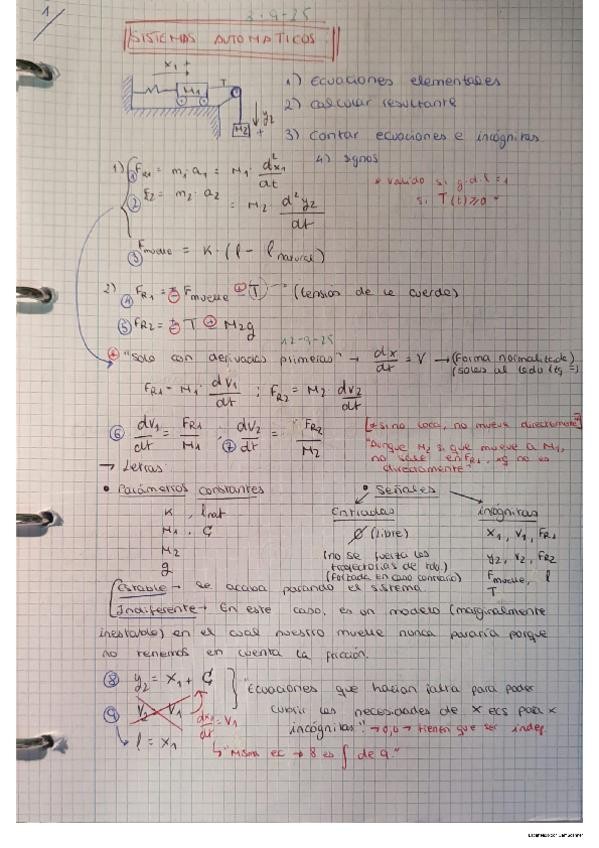 1/
3-9-25
SISTEMAS AUTOMATICOS
x1 +
M1
T
y2
+
M2
1) ecuaciones elementales
2) calcular resultante
3) Contar ecuaciones e incógnitas
4) signos
* valido si g.d.l = 1
si T(t) ≥ 0
1) ① FR1 = m1·a1 = M1 · d²x1/dt
② = m2·a2 = M2 d²y2/dt
③ Fmuelle = K·(l - lnatural)
2) ④ FR1 = ± Fmuelle ⊕ T (tensión de la cuerda)
⑤ FR2 = ± T ⊕ M2g
12-9-25
"solo con derivadas primeras" → dx/dt = V → (forma normalizada)
FR1 = M1 · dV1/dt ; FR2 = M2 dV2/dt
⑥ dV1/dt = FR1/M1 , ⑦ dV2/dt = FR2/M2
[* si no toca, no mueve directamente]
"Aunque M2 si que mueve a M1,
no sale en FR1, xq no es
directamente"
→ Letras:
• Parámetros constantes
• Señales
K , lnat
M1 , Ç
M2
g
Entradas
Ø (libre)
(no se fuerza las
trayectorias de
(forzada en caso contrario)
incógnitas
x1, V1, FR1
y2, V2, FR2
Fmuelle, l
T
Estable → se acaba parando el sistema
Indiferente → En este caso, es un modelo (marginalmente
inestable) en el cual nuestro muelle nunca pararía porque
no tenemos en cuenta la fricción.
⑧ y2 = x1 + Ç
"Ecuaciones que hacían falta para poder
cubrir las necesidades de x ecs para x
incógnitas" → tienen que ser indep.
⑨ V2 = V1
dx1/dt = V1
l = x1
"Misma ec → 8 es ∫ de 9."